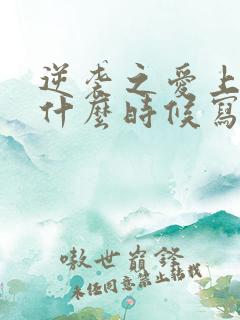 逆袭之愛上
什麼時候寫
嗷世巔鋒
未经同意禁止转载